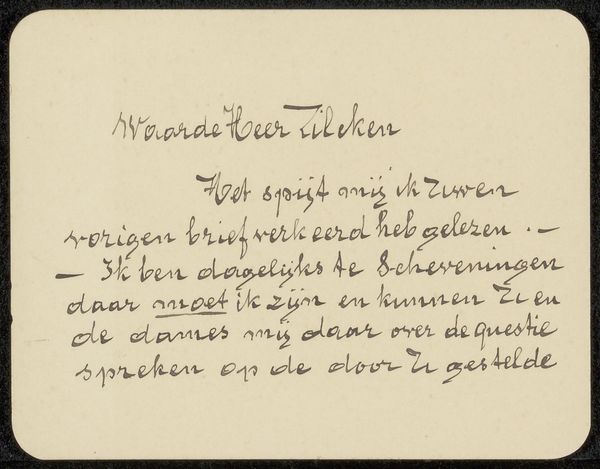 Waarde Heer Zilcken
Het spijt mij ik Uwen
vorigen brief verkeerd heb gelezen . —
— Ik ben dagelijks te Scheveningen
daar moet ik zijn en kunnen U en
de dames mij daar over de questie
spreken op de door U gestelde